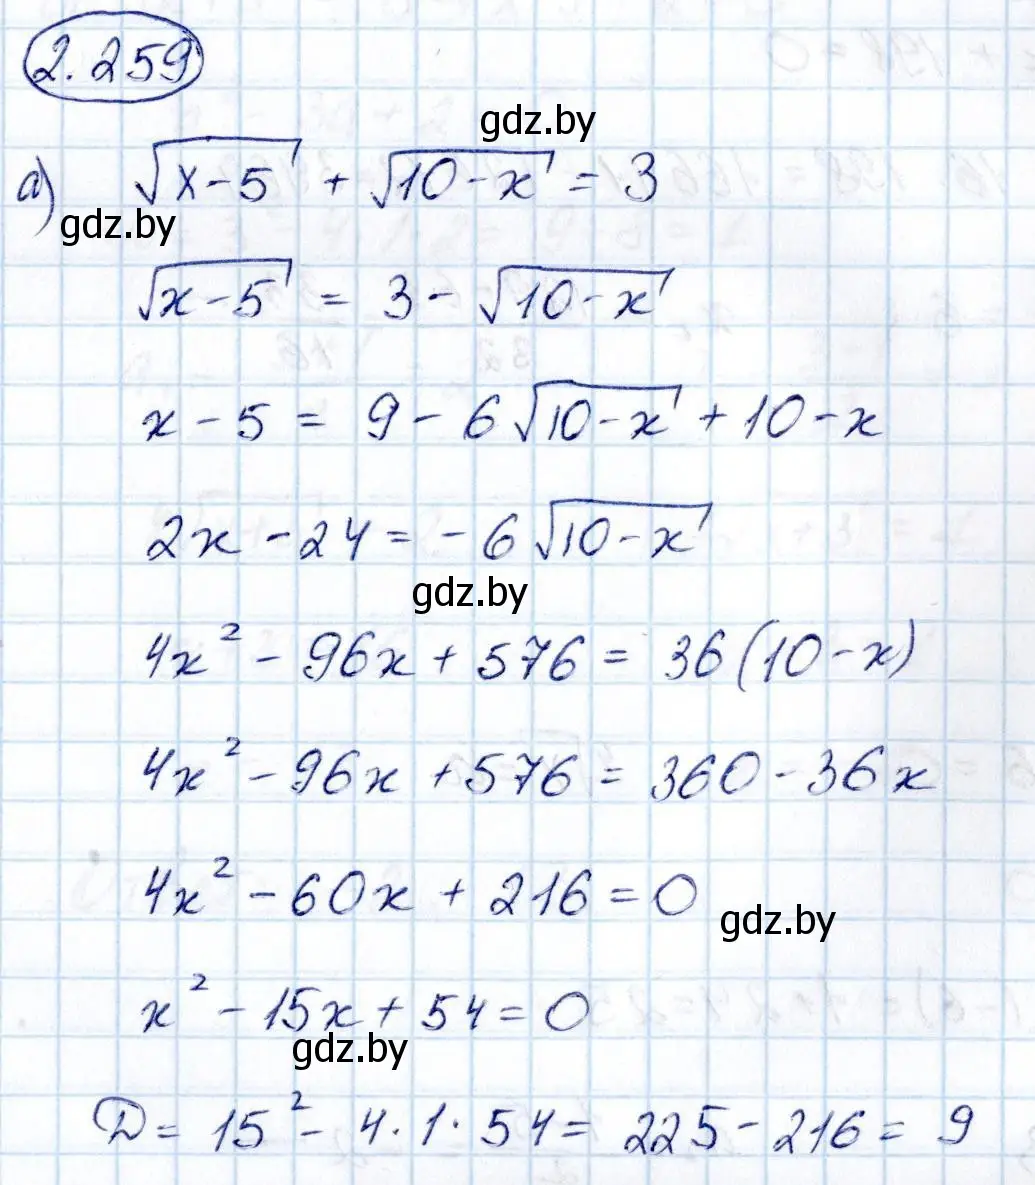 2.259
gdz.by
а) √(x-5) + √(10-x) = 3
gdz.by
√(x-5) = 3 - √(10-x)
x - 5 = 9 - 6√(10-x) + 10 - x
2x - 24 = -6√(10-x)
gdz.by
4x² - 96x + 576 = 36(10-x)
4x² - 96x + 576 = 360 - 36x
4x² - 60x + 216 = 0
gdz.by
x² - 15x + 54 = 0
gdz.by
D = 15² - 4·1·54 = 225 - 216 = 9